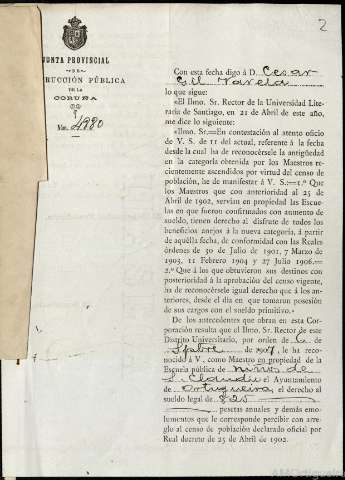 2
JUNTA PROVINCIAL
DE
RUCCIÓN PÚBLICA
DE LA
CORUÑA
Núm. 4880
Con esta fecha digo á D. Cesar
Gil Varela
lo que sigue:
«El Ilmo. Sr. Rector de la Universidad Lite-
raria de Santiago, en 21 de Abril de este año,
me dice lo siguiente:
«Ilmo. Sr.—En contestación al atento oficio
de V. S. de 11 del actual, referente á la fecha
desde la cual ha de reconocérsele la antigüedad
en la categoría obtenida por los Maestros re-
cientemente ascendidos por virtud del censo de
población, he de manifestar á V. S.:—1.º Que
los Maestros que con anterioridad al 25 de
Abril de 1902, servían en propiedad las Escue-
las en que fueron confirmados con aumento de
sueldo, tienen derecho al disfrute de todos los
beneficios anejos á la nueva categoría, á partir
de aquélla fecha, de conformidad con las Reales
órdenes de 30 de Julio de 1901, 7 de Marzo de
1903, 11 Febrero 1904 y 27 Julio 1906.—
2.º Que á los que obtuvieron sus destinos con
posterioridad á la aprobación del censo vigente,
ha de reconocérsele igual derecho que á los an-
teriores, desde el día en que tomaron posesión
de sus cargos con el sueldo primitivo.»
De los antecedentes que obran en esta Cor-
poración resulta que el Ilmo. Sr. Rector de este
Distrito Universitario, por orden de 6 de
Spbre de 1907, le ha reco-
nocido á V. como Maestro en propiedad de la
Escuela pública de niños de
S. Claudio Ayuntamiento
de Ortigueira, el derecho al
sueldo legal de 825
pesetas anuales y démás emo-
lumentos que le corresponde percibir con arre-
glo al censo de población declarado oficial por
Real decreto de 25 de Abril de 1902.